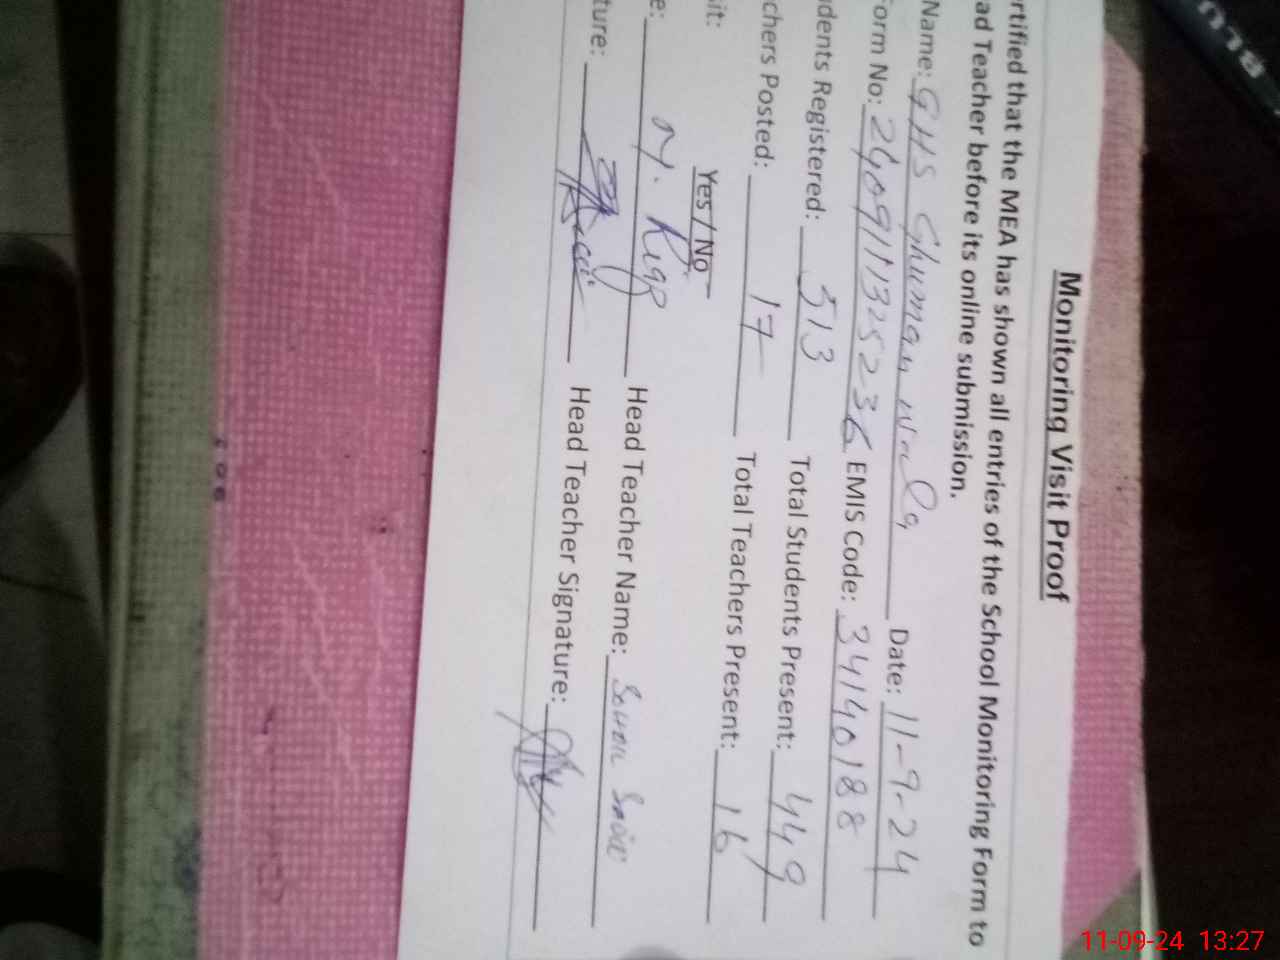 Monitoring Visit Proof
rtified that the MEA has shown all entries of the School Monitoring Form to
ad Teacher before its online submission.
Name: GHS Ghuman wala Date: 11-9-24
orm No: 2409111325236 EMIS Code: 34140188
dents Registered: 513 Total Students Present: 449
chers Posted: 17 Total Teachers Present: 16
it: Yes / No
e: M. Head Teacher Name:
ture: Head Teacher Signature:
11-09-24 13:27